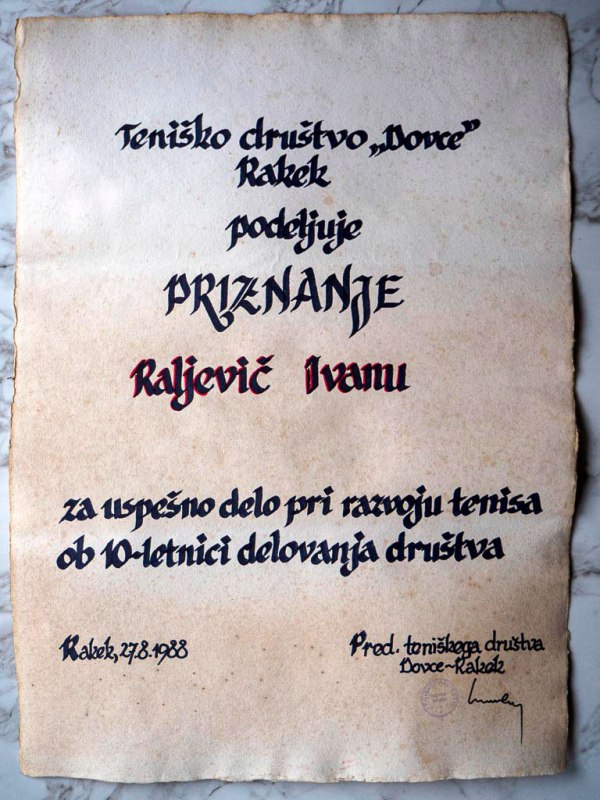 Teniško društvo „Dovce”
Rakek
podeljuje
PRIZNANJE
Raljevič Ivanu
za uspešno delo pri razvoju tenisa
ob 10-letnici delovanja društva
Rakek, 27.8.1988
Pred. teniškega društva
Dovce-Rakek